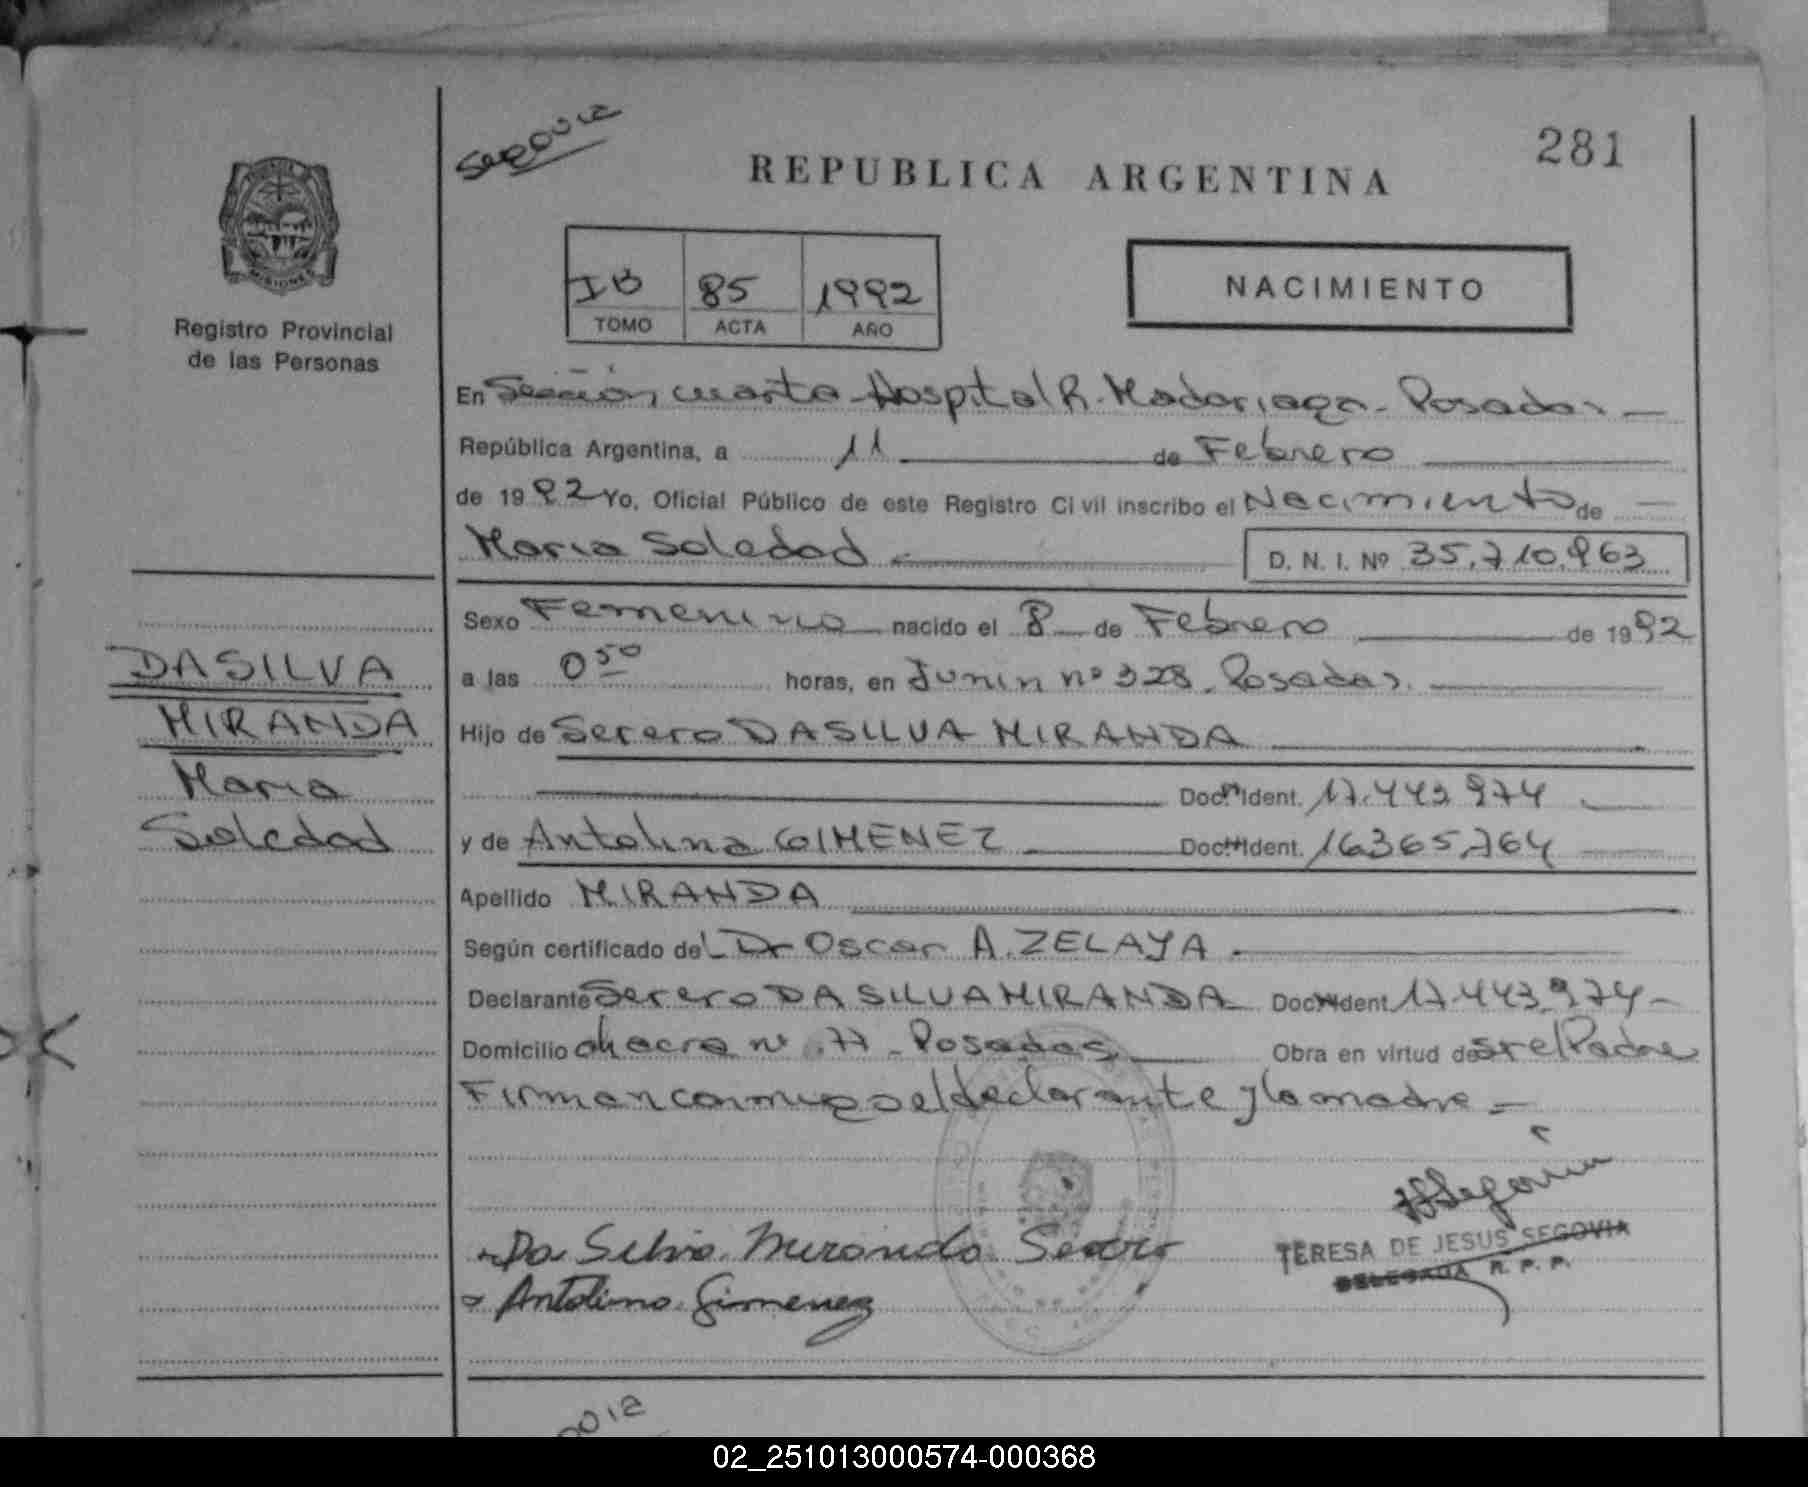 Segovia
281
REPUBLICA ARGENTINA
MISIONES
Registro Provincial
de las Personas
IB 85 1992
TOMO ACTA AÑO
NACIMIENTO
En Sección cuarta Hospital R. Madariaga - Posadas -
República Argentina, a 11 de Febrero
de 1992 Yo, Oficial Público de este Registro Civil inscribo el Nacimiento de
Maria Soledad D. N. I. Nº 35.710.963
Sexo Femenino nacido el 8 de Febrero de 1992
a las 0 50 horas, en Junin nº 328. Posadas.
Hijo de Serero DASILVA MIRANDA
Doc. Ident. 17.443.974
y de Antolina GIMENEZ Doc. Ident. 16365.764
Apellido MIRANDA
Según certificado del Dr Oscar A. ZELAYA
Declarante Serero DA SILVA MIRANDA Doc. Ident. 17.443.974 -
Domicilio chacra nº 77 - Posadas Obra en virtud de ser el Padre
Firman conmigo el declarante y la madre =
DASILVA
MIRANDA
Maria
Soledad
Da Silva Miranda Serero
Antolina Gimenez
TERESA DE JESUS SEGOVIA
DELEGADA R. P. P.
02_251013000574-000368